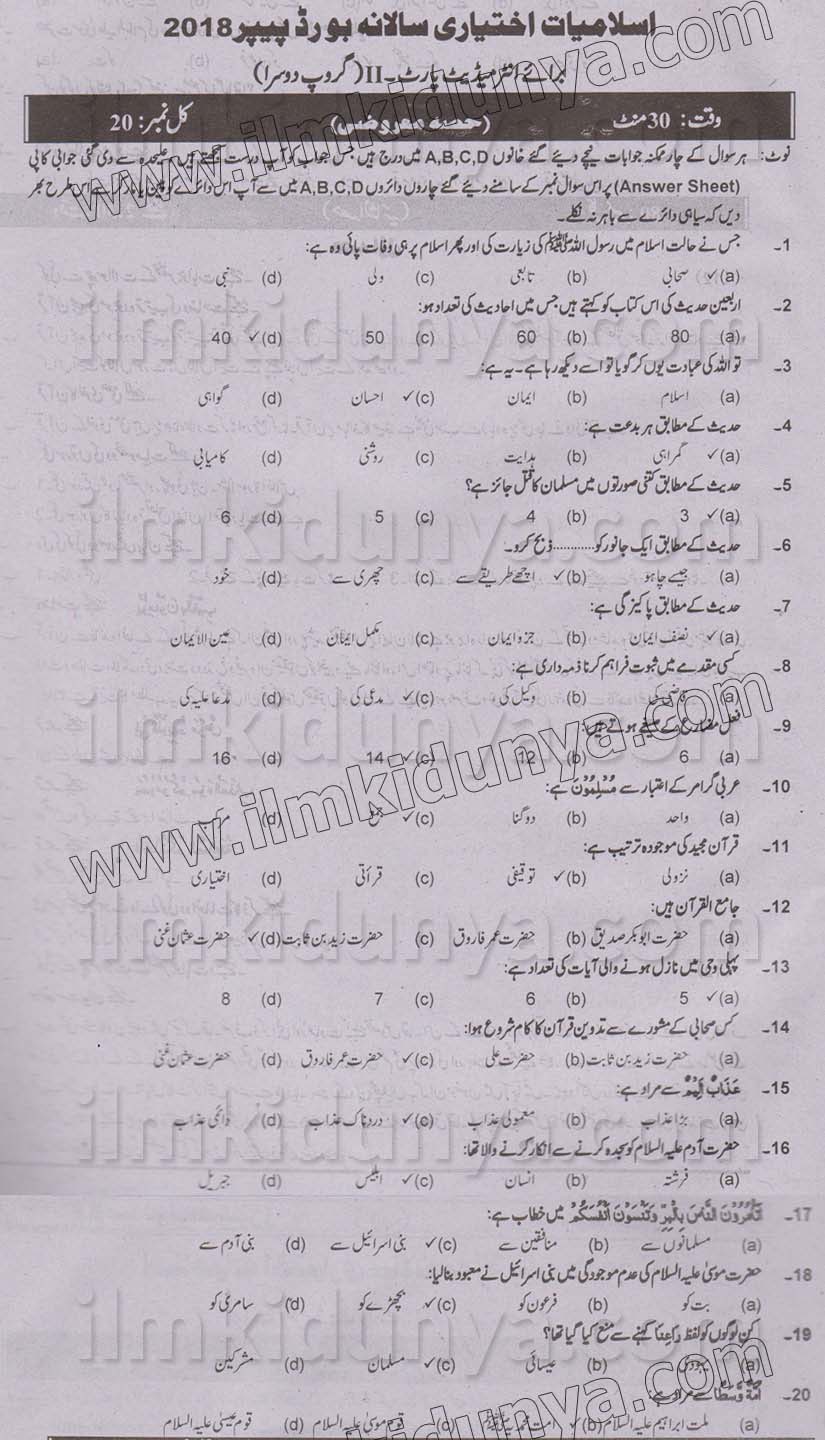 اسلامیات اختیاری سالانہ بورڈ پیپر 2018
برائے انٹرمیڈیٹ پارٹ۔II (گروپ دوسرا)
وقت: 30 منٹ (حصہ معروضی) کل نمبر: 20
نوٹ: ہر سوال کے چار ممکنہ جوابات نیچے دیئے گئے خانوں A,B,C,D میں درج ہیں، جس جواب کو آپ درست سمجھتے ہیں، علیحدہ سے دی گئی جوابی کاپی
(Answer Sheet) پر اس سوال نمبر کے سامنے دیئے گئے چاروں دائروں A,B,C,D میں سے آپ اس دائرے کو پین یا مارکر سے اس طرح بھر
دیں کہ سیاہی دائرے سے باہر نہ نکلے۔
1۔ جس نے حالت اسلام میں رسول اللہ ﷺ کی زیارت کی اور پھر اسلام پر ہی وفات پائی وہ ہے:
(a)✓ صحابی (b) تابعی (c) ولی (d) نبی
2۔ اربعین حدیث کی اس کتاب کو کہتے ہیں جس میں احادیث کی تعداد ہو:
(a) 80 (b) 60 (c) 50 (d)✓ 40
3۔ تو اللہ کی عبادت یوں کر گویا تو اسے دیکھ رہا ہے۔ یہ ہے:
(a) اسلام (b) ایمان (c)✓ احسان (d) گواہی
4۔ حدیث کے مطابق ہر بدعت ہے:
(a)✓ گمراہی (b) ہدایت (c) روشنی (d) کامیابی
5۔ حدیث کے مطابق کتنی صورتوں میں مسلمان کا قتل جائز ہے؟
(a)✓ 3 (b) 4 (c) 5 (d) 6
6۔ حدیث کے مطابق ایک جانور کو ............ ذبح کرو۔
(a) جیسے چاہو (b)✓ اچھے طریقے سے (c) چھری سے (d) خود
7۔ حدیث کے مطابق پاکیزگی ہے:
(a)✓ نصف ایمان (b) جزو ایمان (c) مکمل ایمان (d) عین الایمان
8۔ کسی مقدمے میں ثبوت فراہم کرنا ذمہ داری ہے:
(a) قاضی کی (b) وکیل کی (c)✓ مدعی کی (d) مدعا علیہ کی
9۔ فعل مضارع کے صیغے ہوتے ہیں:
(a) 6 (b) 12 (c)✓ 14 (d) 16
10۔ عربی گرامر کے اعتبار سے مُسْلِمُوْنَ ہے:
(a) واحد (b) دوگنا (c)✓ جمع (d) مرکب
11۔ قرآن مجید کی موجودہ ترتیب ہے:
(a) نزولی (b)✓ توقیفی (c) قرأتی (d) اختیاری
12۔ جامع القرآن ہیں:
(a) حضرت ابوبکر صدیق (b) حضرت عمر فاروق (c) حضرت زید بن ثابت (d)✓ حضرت عثمان غنی
13۔ پہلی وحی میں نازل ہونے والی آیات کی تعداد ہے:
(a)✓ 5 (b) 6 (c) 7 (d) 8
14۔ کس صحابی کے مشورے سے تدوین قرآن کا کام شروع ہوا:
(a) حضرت زید بن ثابت (b) حضرت علی (c)✓ حضرت عمر فاروق (d) حضرت عثمان غنی
15۔ عَذَابٌ اَلِیْمٌ سے مراد ہے:
(a) بڑا عذاب (b) معمولی عذاب (c)✓ دردناک عذاب (d) دائمی عذاب
16۔ حضرت آدم علیہ السلام کو سجدہ کرنے سے انکار کرنے والا تھا:
(a) فرشتہ (b) انسان (c)✓ ابلیس (d) جبریل
17۔ اَتَأْمُرُوْنَ النَّاسَ بِالْبِرِّ وَتَنْسَوْنَ اَنْفُسَكُمْ میں خطاب ہے:
(a) مسلمانوں سے (b) منافقین سے (c)✓ بنی اسرائیل سے (d) بنی آدم سے
18۔ حضرت موسیٰ علیہ السلام کی عدم موجودگی میں بنی اسرائیل نے معبود بنالیا:
(a) بت کو (b) فرعون کو (c)✓ بچھڑے کو (d) سامری کو
19۔ کن لوگوں کو لفظ رَاعِنَا کہنے سے منع کیا گیا تھا؟
(a) یہودی (b) عیسائی (c)✓ مسلمان (d) مشرکین
20۔ اُمَّةً وَّسَطًا سے مراد ہے:
(a) ملت ابراہیم علیہ السلام (b)✓ امت محمد ﷺ (c) قوم موسیٰ علیہ السلام (d) قوم عیسیٰ علیہ السلام
www.ilmkidunya.com
ilmkidunya.com